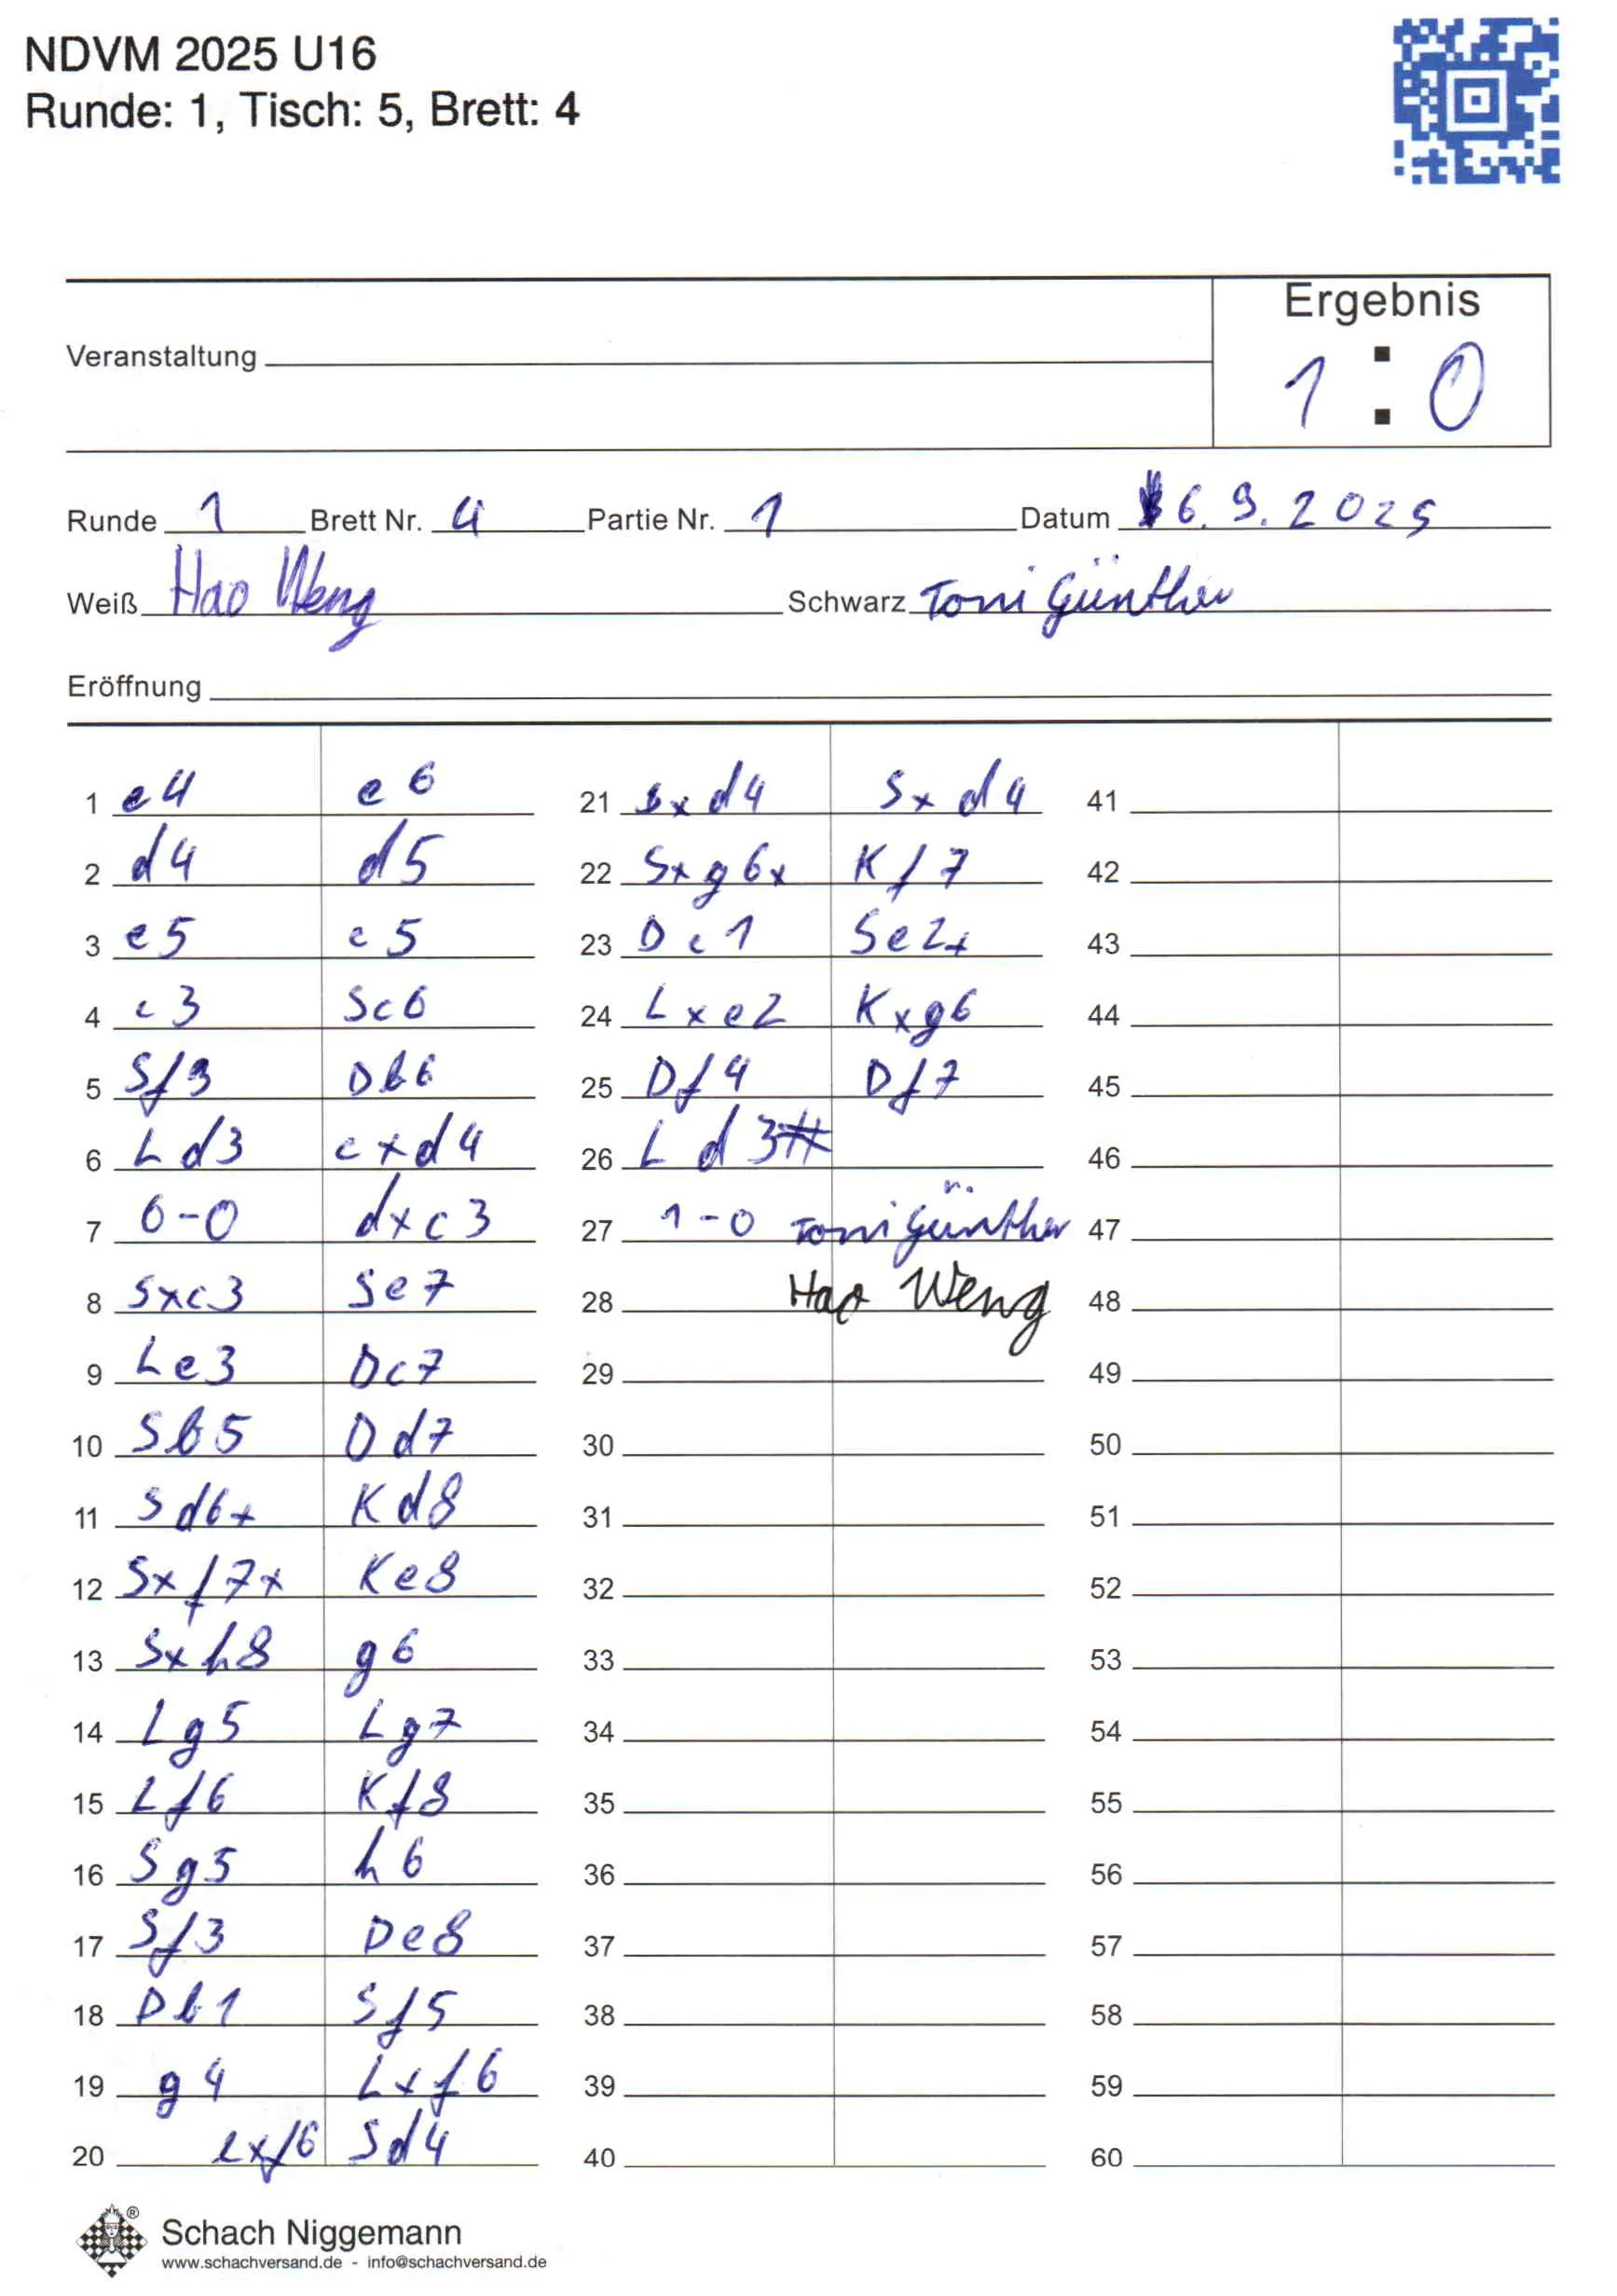 NDVM 2025 U16
Runde: 1, Tisch: 5, Brett: 4
Ergebnis
Veranstaltung
1 : 0
Runde 1 Brett Nr. 4 Partie Nr. 1 Datum 6.9.2025
Weiß Hao Weng Schwarz Toni Günther
Eröffnung
1 e4 e6
2 d4 d5
3 e5 c5
4 c3 Sc6
5 Sf3 Db6
6 Ld3 cxd4
7 0-0 dxc3
8 Sxc3 Se7
9 Le3 Dc7
10 Sb5 Dd7
11 Sd6+ Kd8
12 Sxf7+ Ke8
13 Sxh8 g6
14 Lg5 Lg7
15 Lf6 Kf8
16 Sg5 h6
17 Sf3 De8
18 Db1 Sf5
19 g4 Lxf6
20 exf6 Sd4
21 Sxd4 Sxd4
22 Sxg6+ Kf7
23 Dc1 Se2+
24 Lxe2 Kxg6
25 Df4 Df7
26 Ld3#
27 1-0 Toni Günther
28 Hao Weng
29
30
31
32
33
34
35
36
37
38
39
40
41
42
43
44
45
46
47
48
49
50
51
52
53
54
55
56
57
58
59
60
Schach Niggemann
www.schachversand.de - info@schachversand.de